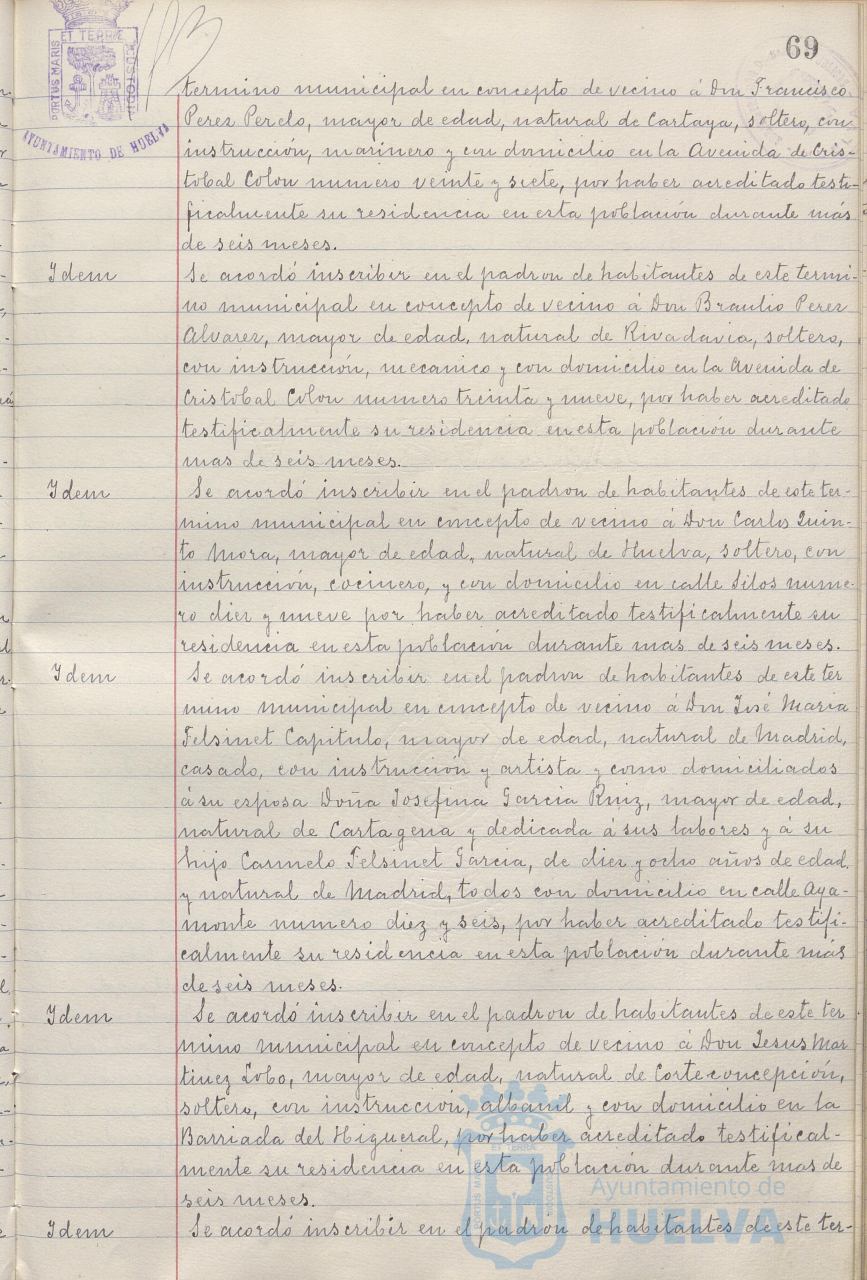 69
ET TERRÆ
PORTUS MARIS
CUSTODIA
AYUNTAMIENTO DE HUELVA
termino municipal en concepto de vecino á Don Francisco
Perez Perelo, mayor de edad, natural de Cartaya, soltero, con
instrucción, marinero y con domicilio en la Avenida de Cris-
tobal Colon numero veinte y siete, por haber acreditado testi-
ficalmente su residencia en esta población durante más
de seis meses.
Idem
Se acordó inscribir en el padron de habitantes de este termi-
no municipal en concepto de vecino á Don Braulio Perez
Alvarez, mayor de edad, natural de Rivadavia, soltero,
con instrucción, mecanico y con domicilio en la Avenida de
Cristobal Colon numero treinta y nueve, por haber acreditado
testificalmente su residencia en esta población durante
mas de seis meses.
Idem
Se acordó inscribir en el padron de habitantes de este ter-
mino municipal en concepto de vecino á Don Carlos Quin-
to Mora, mayor de edad, natural de Huelva, soltero, con
instrucción, cocinero, y con domicilio en calle Silos nume-
ro diez y nueve por haber acreditado testificalmente su
residencia en esta población durante mas de seis meses.
Idem
Se acordó inscribir en el padron de habitantes de este ter
mino municipal en concepto de vecino á Don José Maria
Felsinet Capitulo, mayor de edad, natural de Madrid,
casado, con instrucción y artista y como domiciliados
á su esposa Doña Josefina Garcia Ruiz, mayor de edad,
natural de Cartagena y dedicada á sus labores y á su
hijo Carmelo Felsinet Garcia, de diez y ocho años de edad
y natural de Madrid, todos con domicilio en calle Aya-
monte numero diez y seis, por haber acreditado testifi-
calmente su residencia en esta población durante más
de seis meses.
Idem
Se acordó inscribir en el padron de habitantes de este ter
mino municipal en concepto de vecino á Don Jesus Mar
tinez Lobo, mayor de edad, natural de Corteconcepción,
soltero, con instrucción, albanil y con domicilio en la
Barriada del Higueral, por haber acreditado testifical-
mente su residencia en esta población durante mas de
seis meses.
Idem
Se acordó inscribir en el padron de habitantes de este ter-
Ayuntamiento de
HUELVA